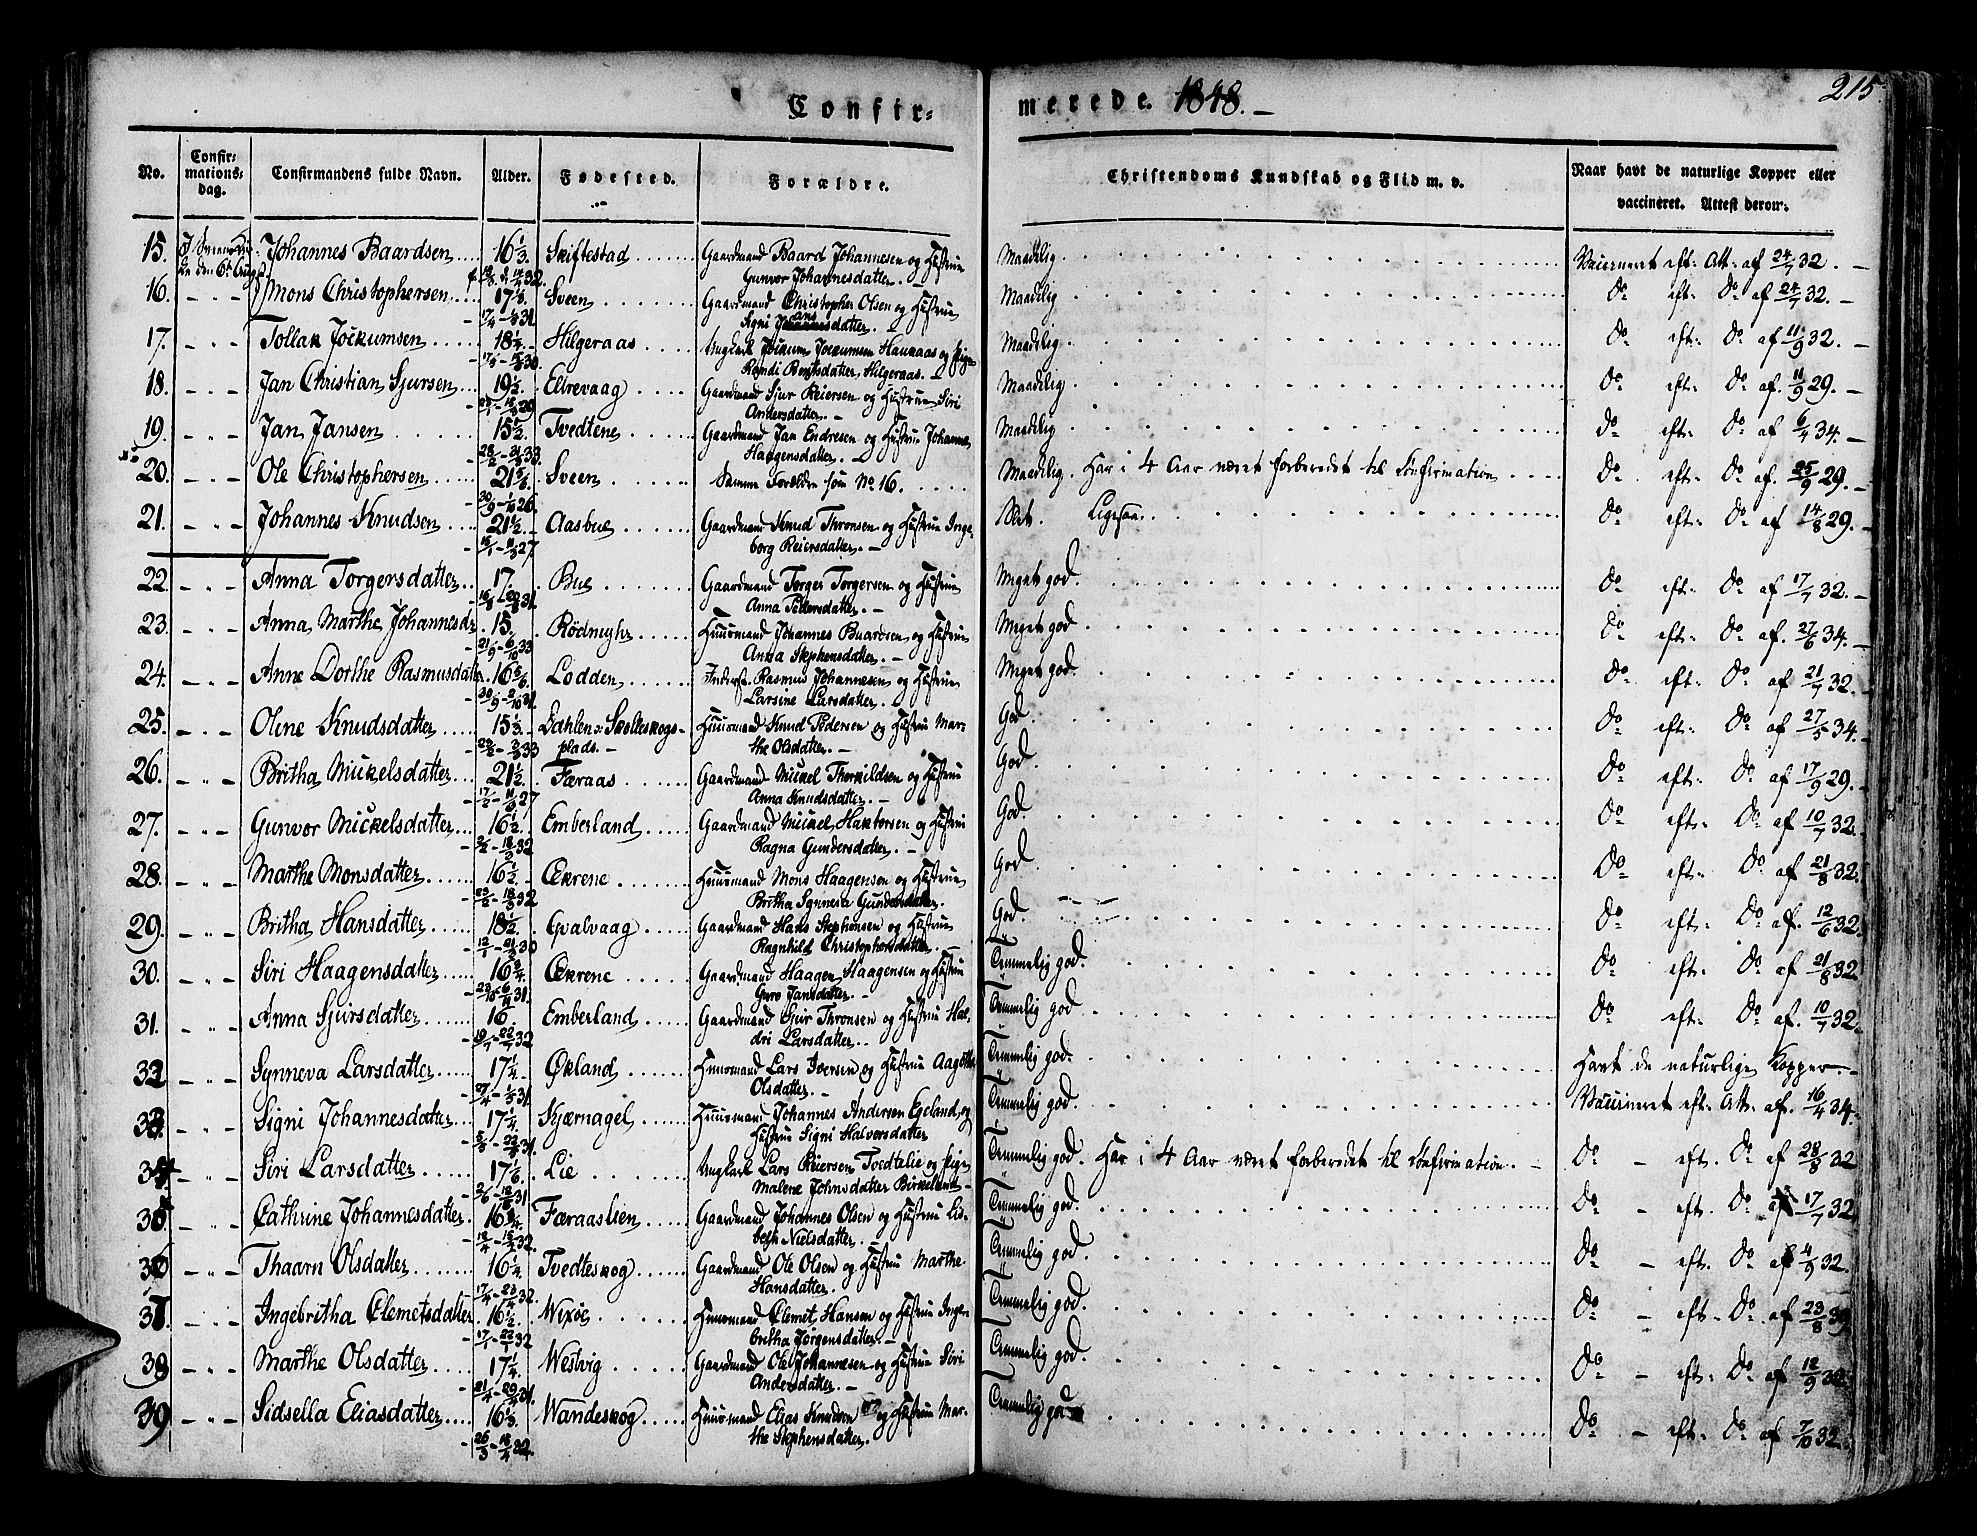 Confir-
merede. 1848. -
215
No.
Confir-
mations-
dag.
Confirmandens fulde Navn.
Alder.
Fødested.
Forældre.
Christendoms Kundskab og Flid m. v.
Naar havt de naturlige Kopper eller
vaccineret. Attest derom.
15. Johannes Baardsen 16 1/3 Skiftestad Gaardmand Baard Johannesen og Hustrue Maadelig Vaccineret eft. Att. af 24/7 32. -
Gunvor Johannesdatter. -
16. - " - Mons Christophersen 17 1/3 Sveen Gaardmand Christopher Olsen og Hustrue Maadelig Do eft. Do af 24/7 32. -
Signi
17. - " - Tollak Jockumsen 18 1/4 Hilgeraas Ungkarl Jockum Jockumsen Haukaas og Pige Maadelig Do eft. Do af 11/9 32. -
Hilgeraas. -
18. - " - Jan Christian Sjursen 19 1/2 Ellrevaag Gaardmand Sjur Reiersen og Hustrue Siri Maadelig Do eft. Do af 11/9 29. -
Andersdatter. -
19. - " - Jan Jansen 15 1/2 Tvedtene Gaardmand Jan Endresen og Hustrue Johanne Maadelig Do eft. Do af 6/4 34. -
Haagensdatter. -
20. - " - Ole Christophersen 21 5/6 Sveen Samme Forældre som No 16. Maadelig. Har i 4 Aar været forberedet til Confirmation Do eft. Do af 25/9 29. -
21. - " - Johannes Knudsen 21 1/2 Aasbue Gaardmand Knud Thronsen og Hustrue Inge- Ligesaa. Do eft. Do af 14/8 29. -
borg Reiersdatter. -
22. - " - Anna Torgersdatter 17. Bue Gaardmand Torger Torgersen og Hustrue Meget god. Do eft. Do af 17/7 32. -
Anna Pedersdatter. -
23. - " - Anna Marthe Johannesdr. 15. Huusmand Johannes Baardsen og Hustrue Meget god Do eft. Do af 27/6 34. -
Anna Stephensdatter. -
24. - " - Anne Dorthe Rasmusdatr. 16 5/6 Lodden Inderst Rasmus Johannesen og Hustrue Meget god. Do eft. Do af 21/7 32. -
Larsine Larsdatter. -
25. - " - Oline Knudsdatter 15 1/3 Dahlen v. Skolleskogs- Huusmand Knud Pedersen og Hustrue Mar- God. Do eft. Do af 27/5 34. -
plads. - the Olsdatter. -
26. - " - Britha Mickelsdatter 21 1/2 Færaas Gaardmand Mickel Thorkildsen og Hustrue God. Do eft. Do af 17/9 29. -
Anna Knudsdatter. -
27. - " - Gunvor Mickelsdatter 16 1/2 Emberland Gaardmand Mickel Haktorsen og Hustrue God. Do eft. Do af 10/7 32.
Ragna Gundersdatter. -
28. - " - Marthe Monsdatter 16 1/2 Økrene Huusmand Mons Haagensen og Hustrue God. Do eft. Do af 21/8 32.
Britha Synneva Gundersdatter.
29. - " - Britha Hansdatter 18 1/2 Qvalvaag Gaardmand Hans Stephensen og Hustrue God. Do eft. Do af 12/6 32.
Ragnhild Christophersdatter. -
30. - " - Siri Haagensdatter 16 3/4 Økrene Gaardmand Haagen Haagensen og Hustrue Temmelig god. Do eft. Do af 21/8 32
Guro Jansdatter. -
31. - " - Anna Sjursdatter 16. Emberland Gaardmand Sjur Thronsen og Hustrue Hal- Temmelig god Do eft. Do af 10/7 32.
dri Larsdatter.
32 - " - Synneva Larsdatter 17 1/4 Økland Huusmand Lars Iversen og Hustrue Aagothe Temmelig god. Havt de naturlige Kopper. -
Olsdatter. -
33. - " - Signi Johannesdatter 17 1/4 Skjærnagel Huusmand Johannes Andersen Egeland og Temmelig god. Vaccineret eft. Att. af 16/4 34.
Hustrue Signi Halvorsdatter
34 - " - Siri Larsdatter 17 1/6 Lie Ungkarl Lars Reiersen Tvedtelie og Pige Temmelig god. Har i 4 Aar været forberedet til Confirmation. - Do - eft. Do af 28/8 32
Malene Johnsdatter Birkeland -
35 - " - Cathrine Johannesdatter 16 1/4 Færaaslien Gaardmand Johannes Olsen og Hustrue Lis- Temmelig god. Do - eft. Do af 17/7 32
beth Nielsdatter. -
36 - " - Thaarn Olsdatter 16 1/4 Tvedteskog Gaardmand Ole Olsen og Hustrue Marthe Temmelig god Do - eft. Do af 4/9 32.
Hansdatter. -
37. - " - Ingebritha Clemetsdatter 16 1/2 Wixøe Huusmand Clemet Hansen og Hustrue Inge- Temmelig god. Do - eft. Do af 23/8
britha Jørgensdatter. -
38 - " - Marthe Olsdatter 17 1/4 Westvig Gaardmand Ole Johannesen og Hustrue Siri Temmelig god. Do - eft. Do af 12/9 32
Andersdatter. -
39 - " - Sidsella Eliasdatter 16 1/3 Wandeskog Huusmand Elias Knudsen og Hustrue Mar- Temmelig god Do - eft. Do af 7/10 32
the Stephensdatter.